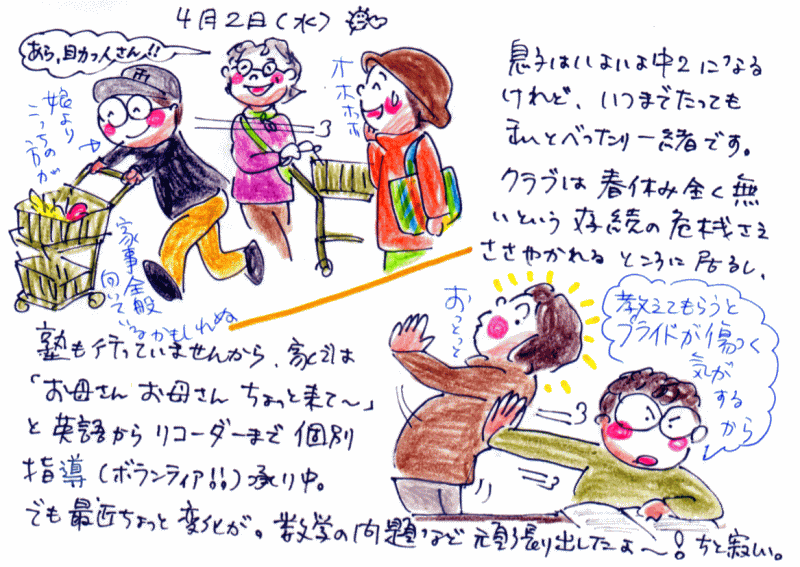 4月2日(水)
あら、助っ人さん!!
オホホホ
娘より
こっちの
方が
家事全般
向いて
いるかもしれぬ
息子はいよいよ中2になる
けれど、いつまでたっても
私とべったり一緒です。
クラブは春休み全く無
いという存続の危機さえ
ささやかれるところに居るし、
塾も行っていませんから、家では
「お母さんお母さんちょっと来て〜」
と英語からリコーダーまで個別
指導(ボランティア!!)承り中。
でも最近ちょっと変化が。数学の問題など頑張り出したよ〜!ちと寂しい。
おっとっと
教えてもらうと
プライドが傷つく
気が
する
から